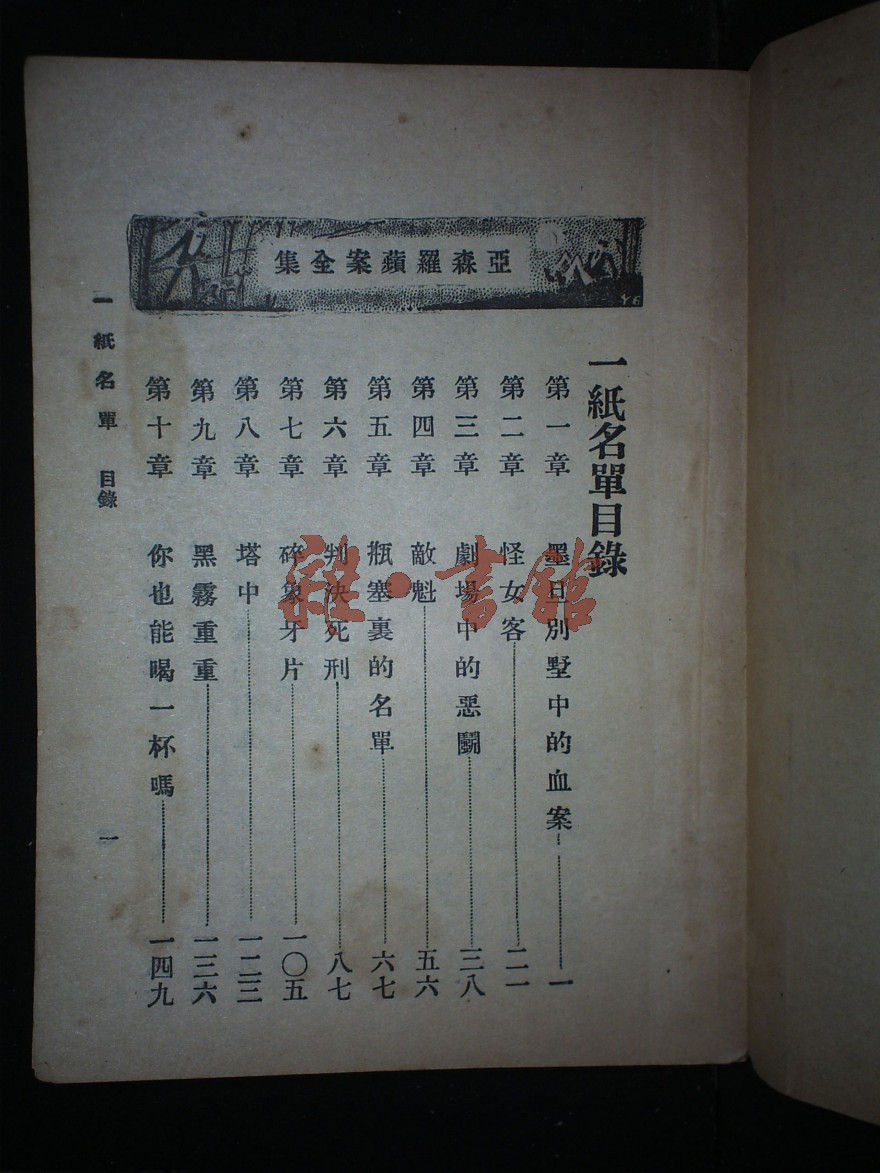 亞森羅蘋案全集
一紙名單目錄
第一章 墨旦別墅中的血案 一
第二章 怪女客 二一
第三章 劇場中的惡鬭 三八
第四章 敵魁 五六
第五章 瓶塞裏的名單 六七
第六章 判決死刑 八七
第七章 碎象牙片 一〇五
第八章 塔中 一二三
第九章 黑霧重重 一三六
第十章 你也能喝一杯嗎 一四九
一紙名單 目錄 一
雜·書館